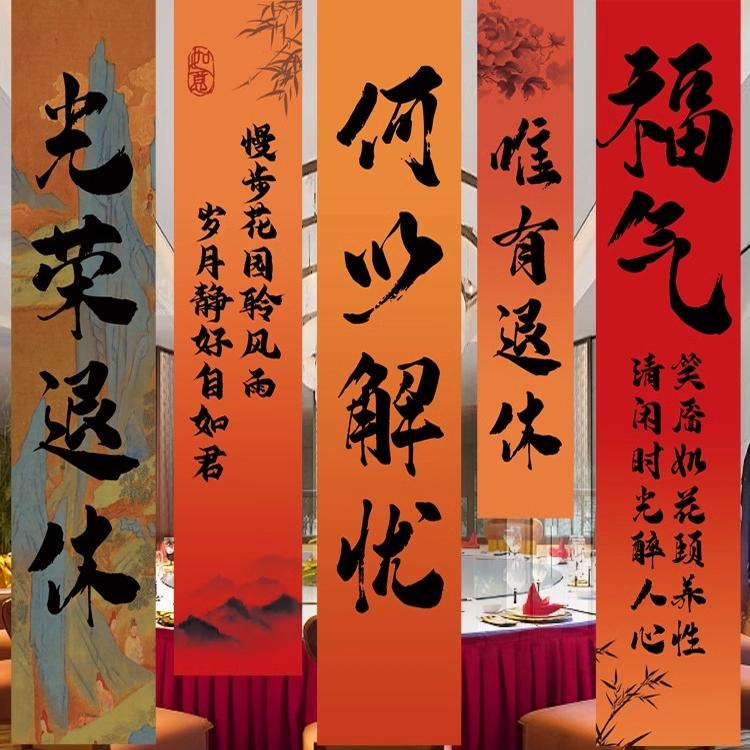 光荣退休
如意
慢步花园聆风雨
岁月静好自如君
何以解忧
唯有退休
福气
笑靥如花颐养性
清闲时光醉人心